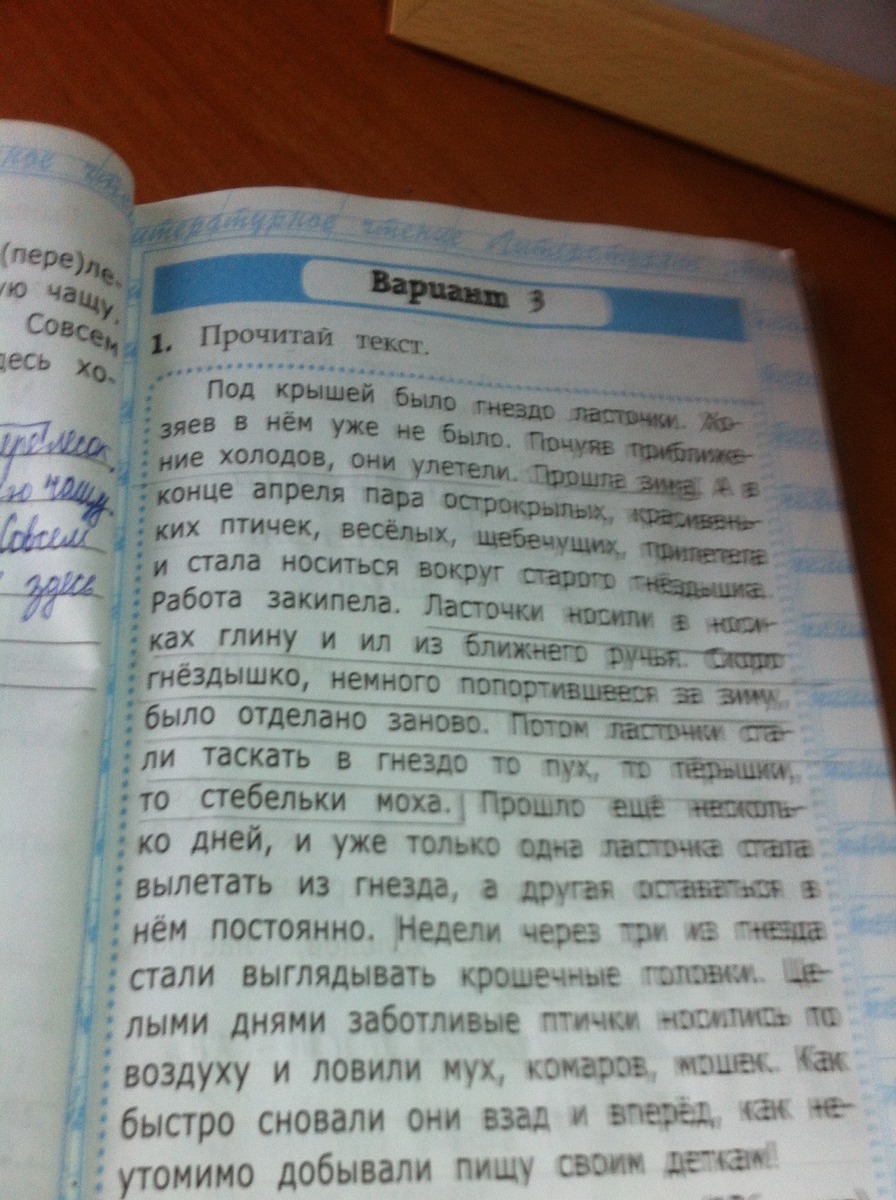 (пере)ле-
ую чащу.
Совсем
десь хо-
чащу
Совсем
здесь
литературное чтение Литературное
Вариант 3
1. Прочитай текст.
Под крышей было гнездо ласточки. Хо-
зяев в нём уже не было. Почуяв приближе-
ние холодов, они улетели. Прошла зима. А в
конце апреля пара острокрылых, красивень-
ких птичек, весёлых, щебечущих, прилетела
и стала носиться вокруг старого гнёздышка.
Работа закипела. Ласточки носили в носи-
ках глину и ил из ближнего ручья. Скоро
гнёздышко, немного попортившееся за зиму,
было отделано заново. Потом ласточки ста-
ли таскать в гнездо то пух, то пёрышки,
то стебельки моха. Прошло ещё несколь-
ко дней, и уже только одна ласточка стала
вылетать из гнезда, а другая оставаться в
нём постоянно. Недели через три из гнезда
стали выглядывать крошечные головки. Це-
лыми днями заботливые птички носились по
воздуху и ловили мух, комаров, мошек. Как
быстро сновали они взад и вперёд, как не-
утомимо добывали пищу своим деткам!